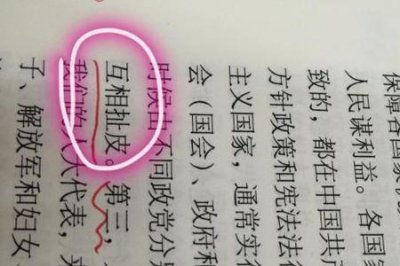 保障各国家机
人民谋利益。各国
致的，都在中国共
方针政策和宪法法
主义国家，通常实
会（国会）、政府和
时候由不同政党分
互相扯皮。第三，
我们的人大代表，
子、解放军和妇女